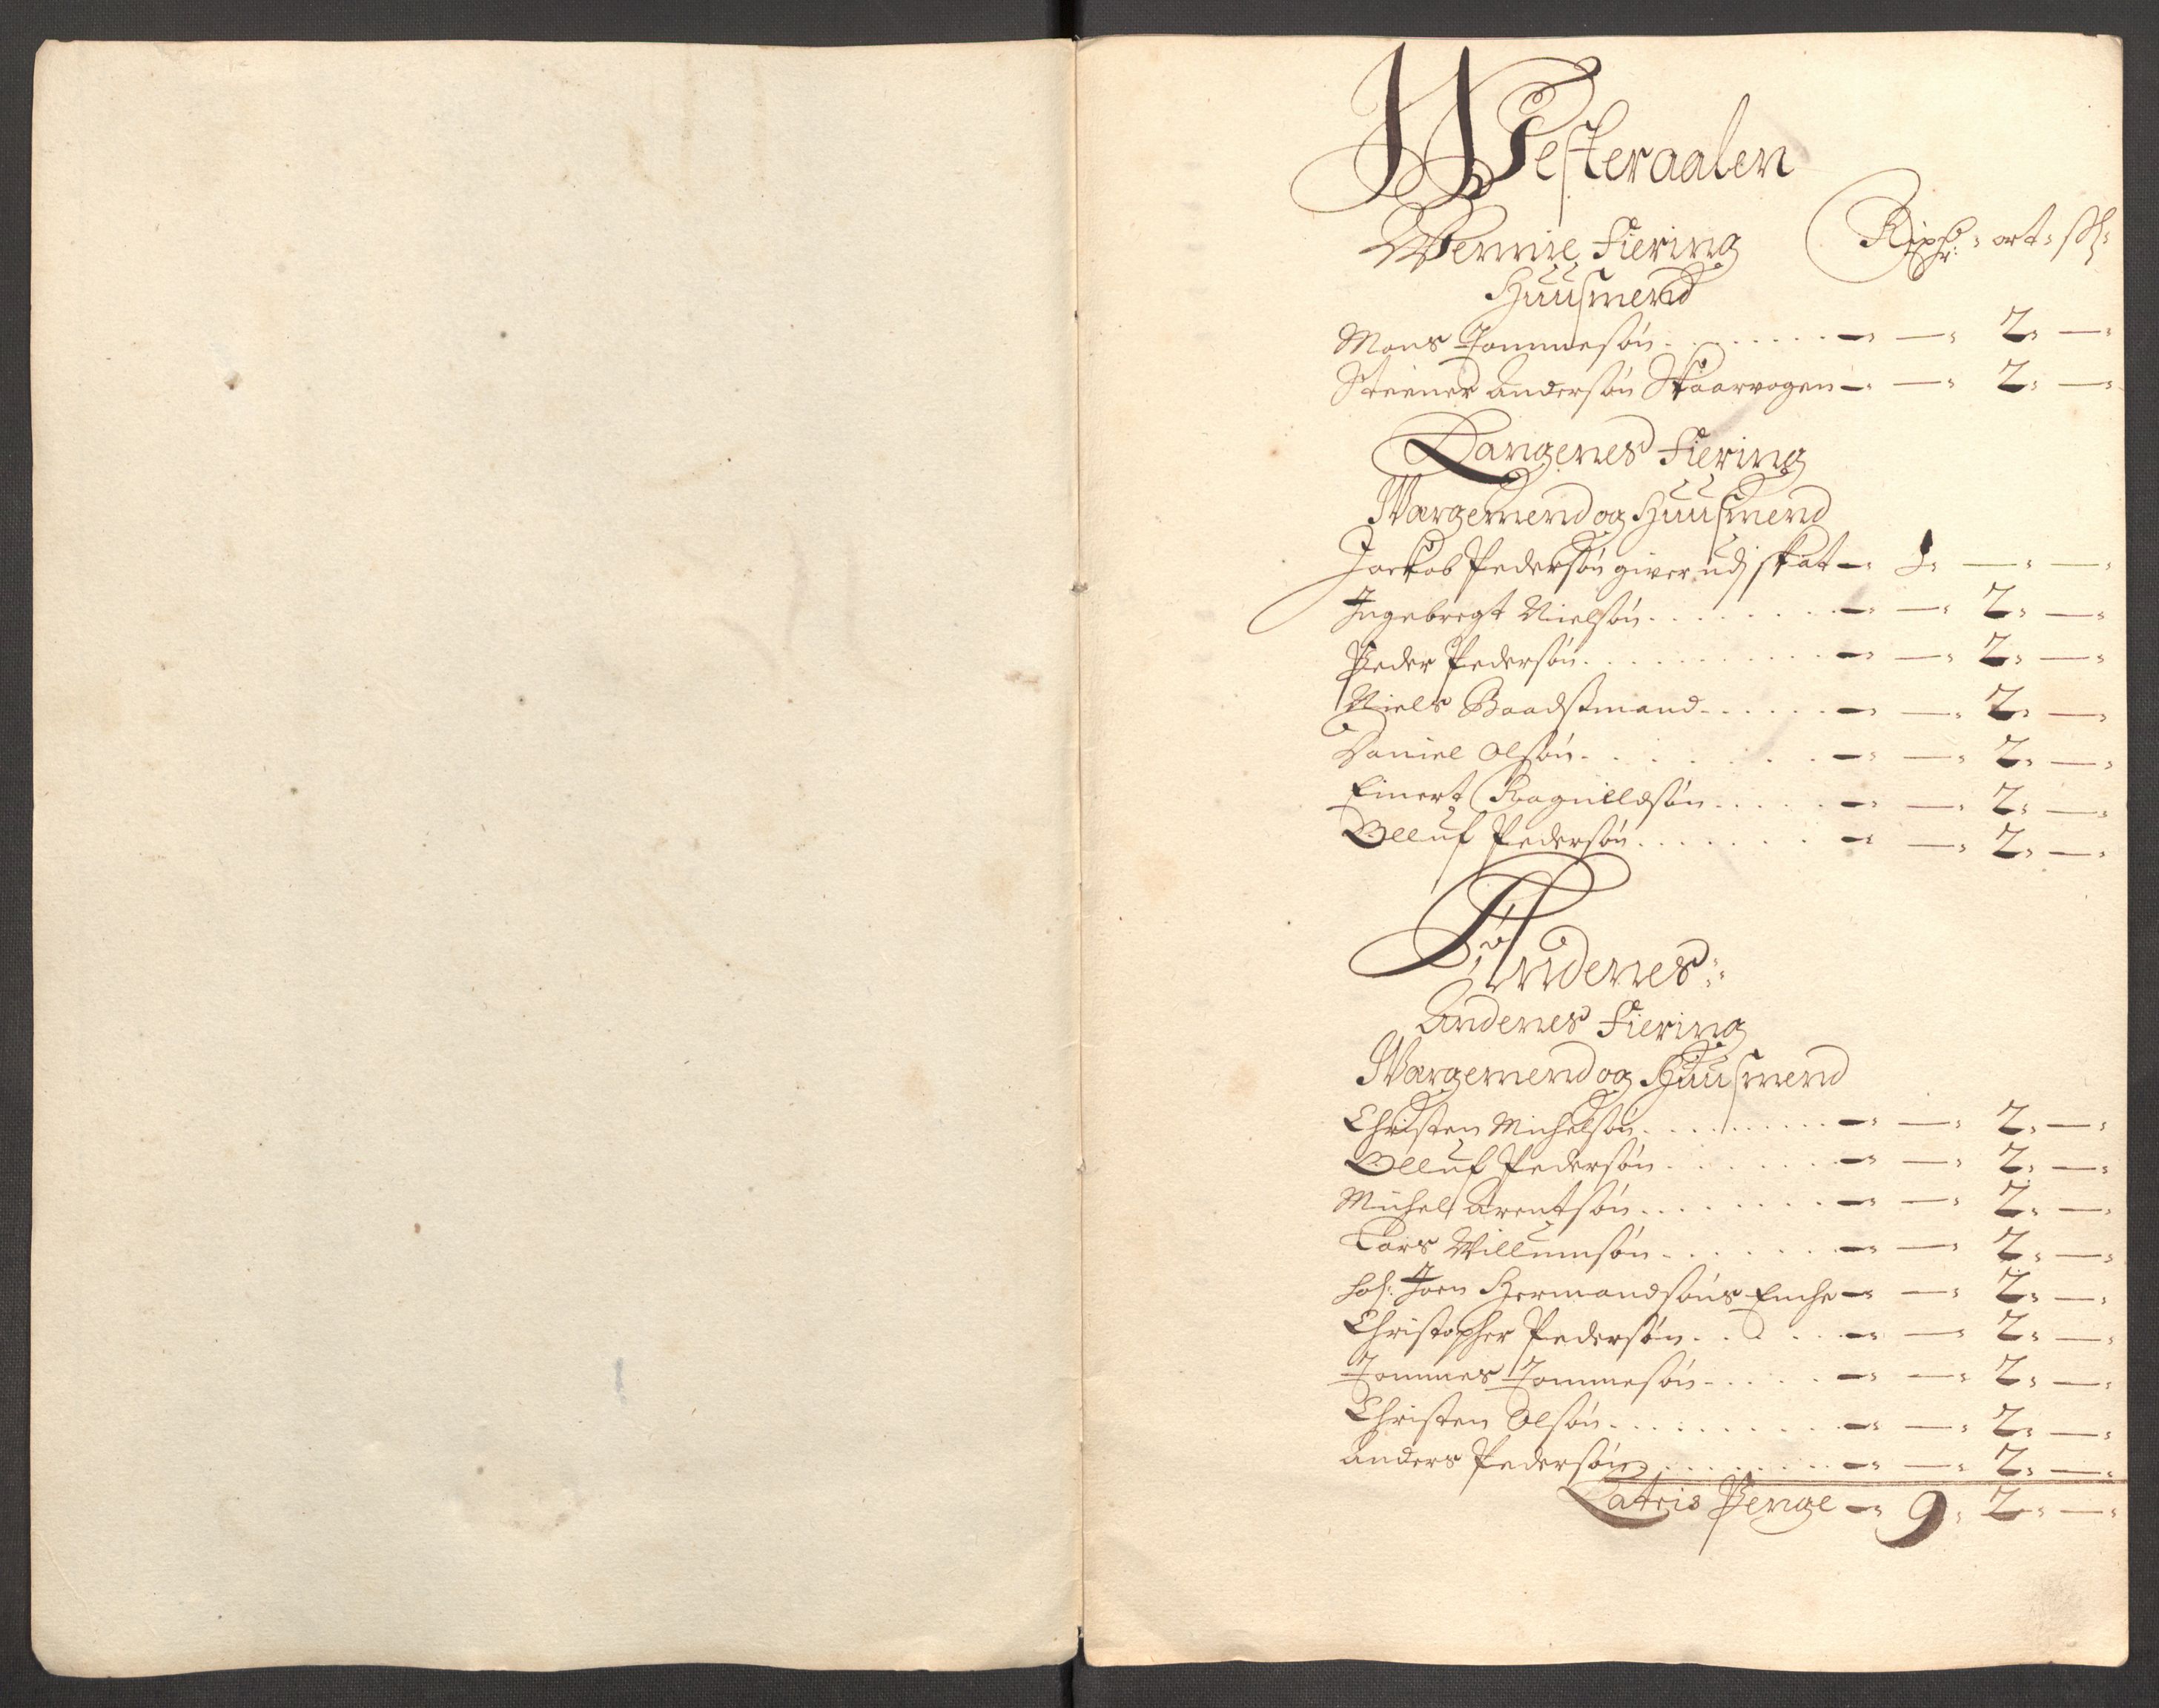 Westeraalen
Wennie Fiering Rixdr: ort: sk:
Huusmend
Mons Tommesøn — — 2 —
Steener Andersøn Skaarvogen — — 2 —
Langenes Fiering
Wargemend og Huusmend
Jackob Pedersøn giver udj skat — 1 — —
Ingebregt Nielsøn — — 2 —
Peder Pedersøn — — 2 —
Niels Baadsmand — — 2 —
Daniel Olsøn — — 2 —
Einert Ragnildsøn — — 2 —
Olluf Pedersøn — — 2 —
Andenes
Andenes Fiering
Wargemend og Huusmend
Christen Michelsøn — — 2 —
Olluf Pedersøn — — 2 —
Michel Arentsøn — — 2 —
Lars Willumsøn — — 2 —
Sal: Joen Hermandsøns Enche — — 2 —
Christopher Pedersøn — — 2 —
Tommes Tommesøn — — 2 —
Christen Olsøn — — 2 —
Anders Pedersøn — — 2 —
Latris Penge — 9 2 —